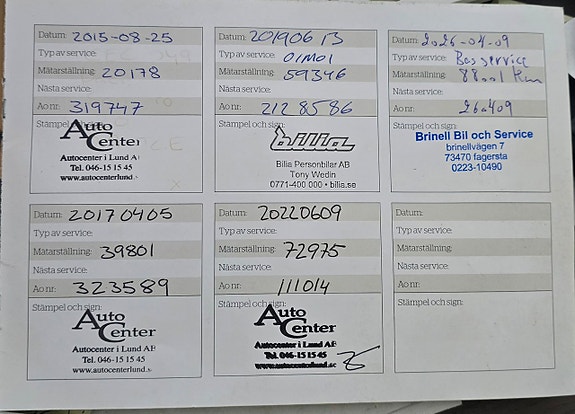 Datum: 2015-08-25
Typ av service:
Mätarställning: 20178
Nästa service:
Ao nr: 319747
Stämpel och sign:
Auto Center
Autocenter i Lund AB
Tel. 046-15 15 45
www.autocenterlund.s
Datum: 20190613
Typ av service: 01M01
Mätarställning: 59346
Nästa service:
Ao nr: 2128586
Stämpel och sign:
bilia
Bilia Personbilar AB
Tony Wedin
0771-400 000 • bilia.se
Datum: 2026-04-09
Typ av service: Bas service
Mätarställning: 88001 Km
Nästa service:
Ao nr: 260409
Stämpel och sign:
Brinell Bil och Service
brinellvägen 7
73470 fagersta
0223-10490
Datum: 20170405
Typ av service:
Mätarställning: 39801
Nästa service:
Ao nr: 323589
Stämpel och sign:
Auto Center
Autocenter i Lund AB
Tel. 046-15 15 45
www.autocenterlund.s
Datum: 20220609
Typ av service:
Mätarställning: 72975
Nästa service:
Ao nr: 111014
Stämpel och sign:
Auto Center
Autocenter i Lund AB
Tel. 046-15 15 45
www.autocenterlund.se
Datum:
Typ av service:
Mätarställning:
Nästa service:
Ao nr:
Stämpel och sign: